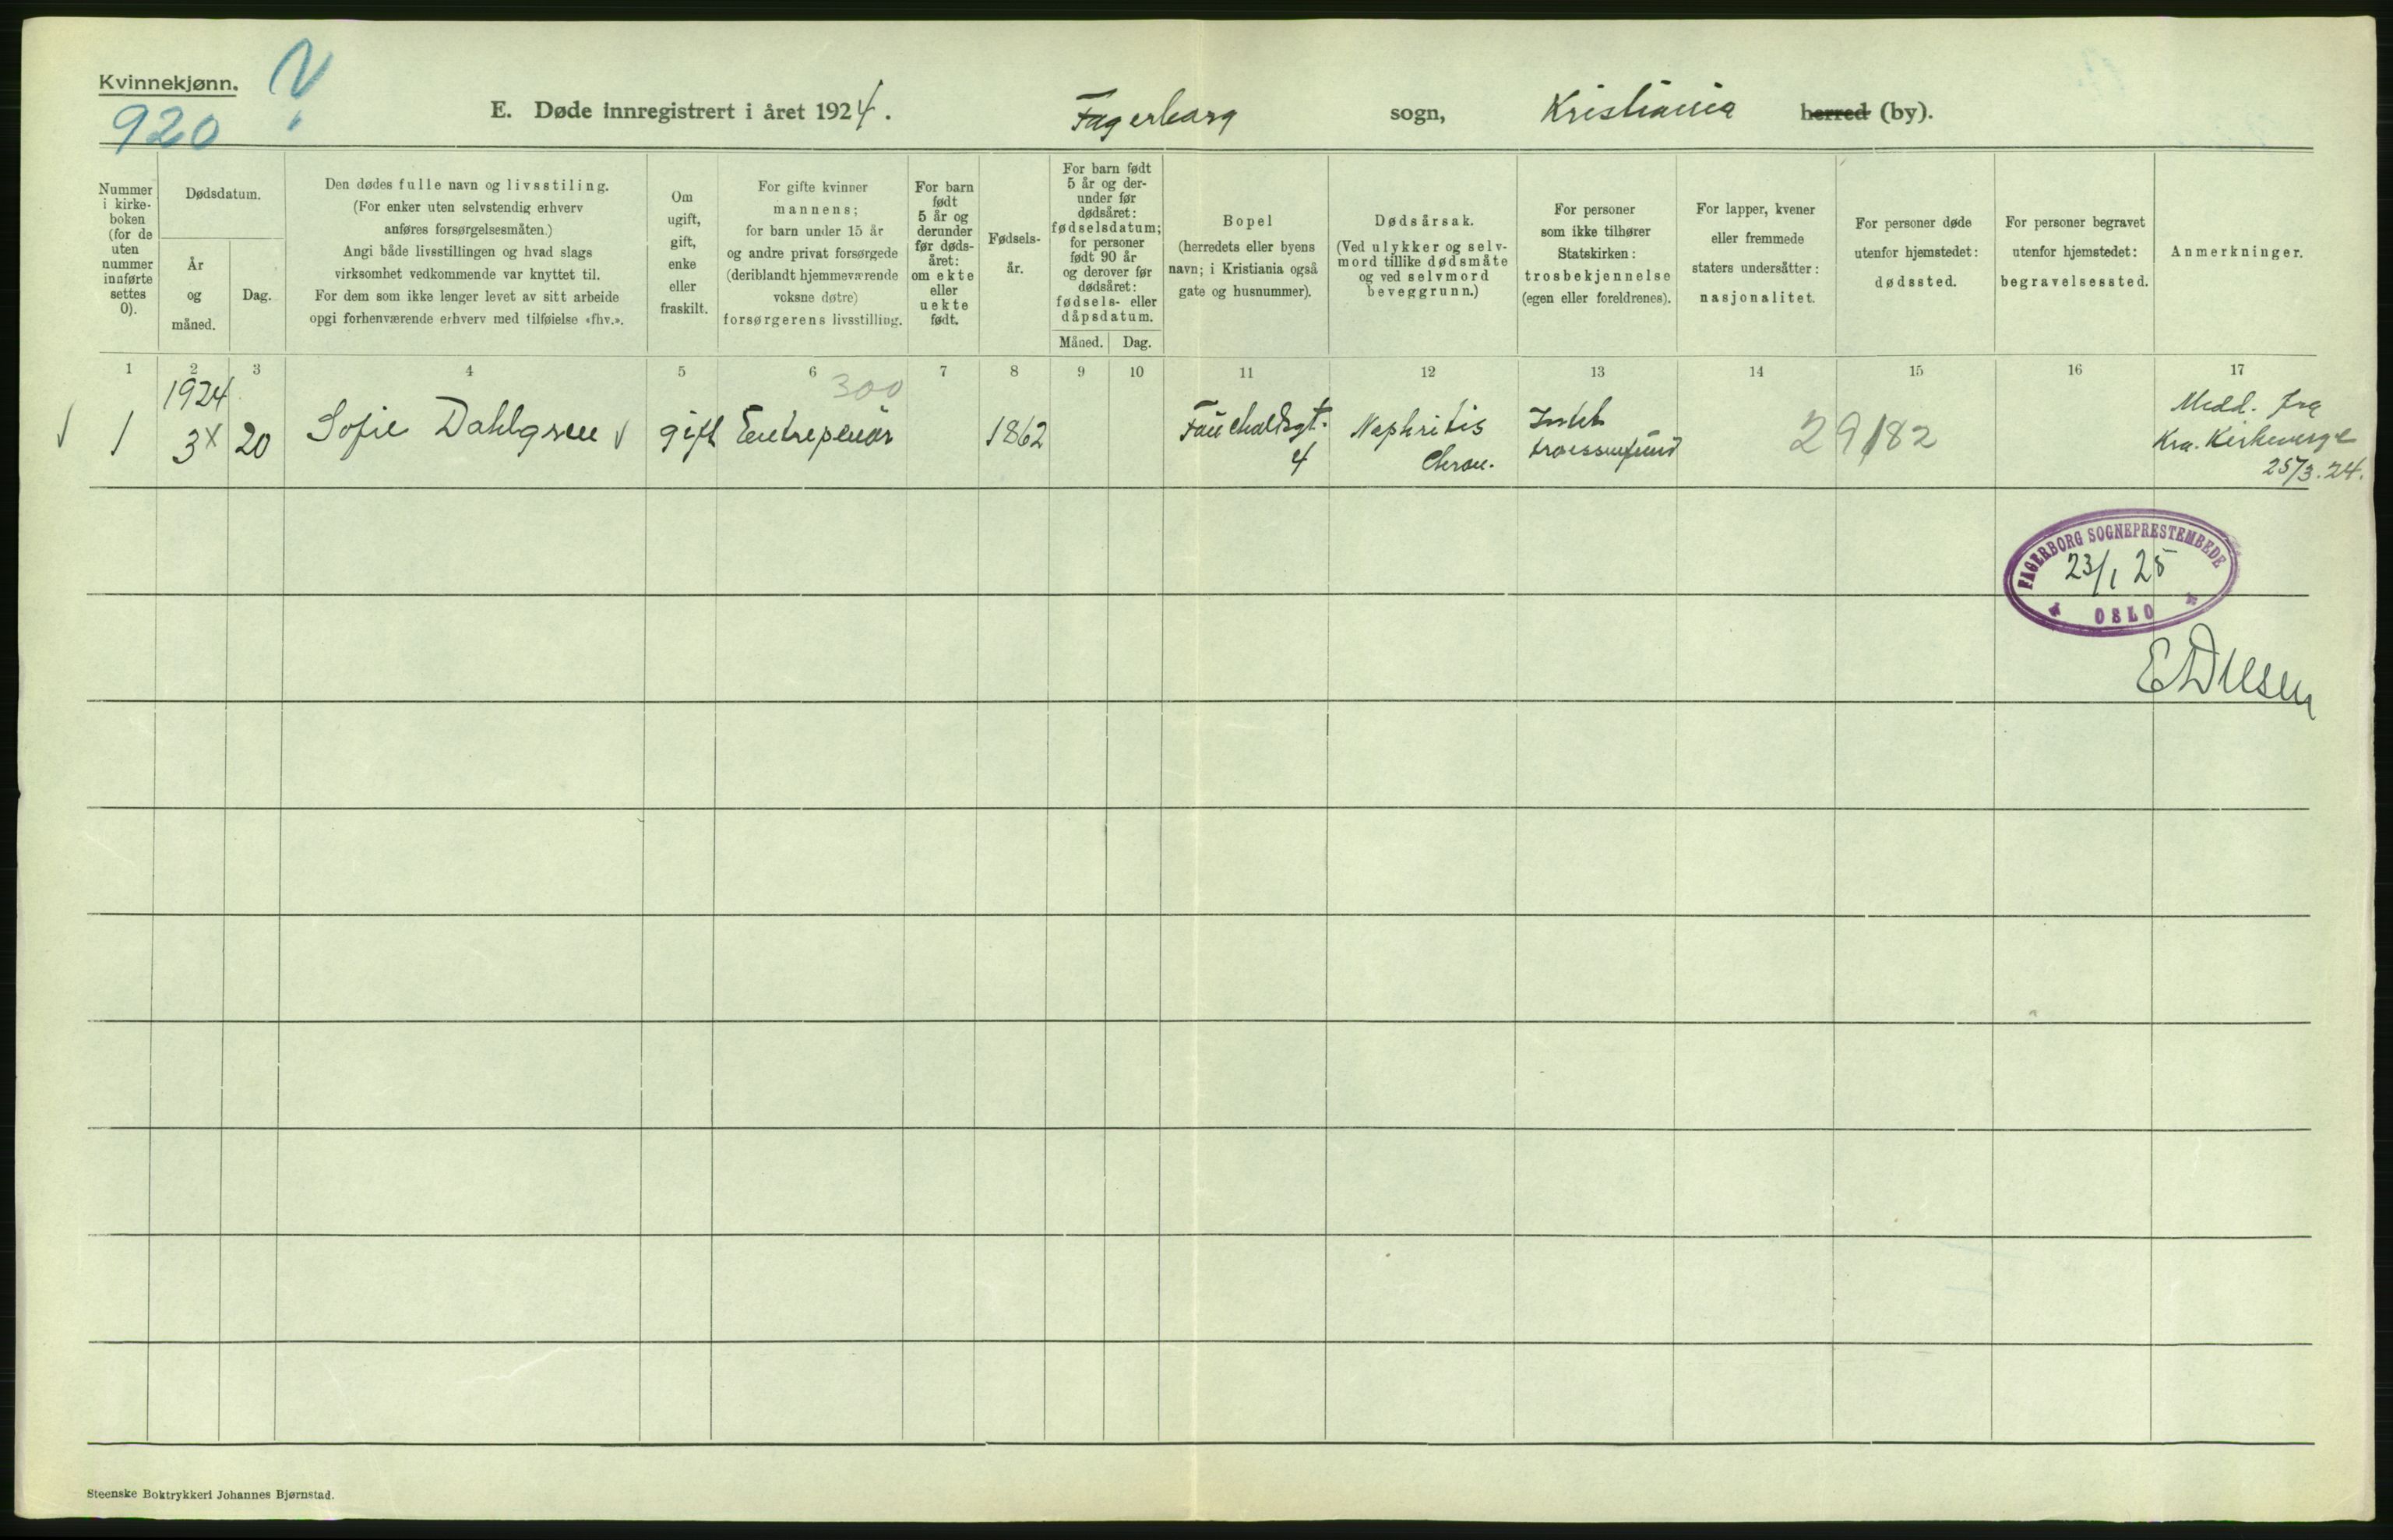 Kvinnekjønn.
920
E. Døde innregistrert i året 1924.
Fagerborg sogn, Kristiania herred (by).
Nummer
i kirke-
boken
(for de
uten
nummer
innførte
settes
0).
Dødsdatum.
År
og
måned.
Dag.
Den dødes fulle navn og livsstiling.
(For enker uten selvstendig erhverv
anføres forsørgelsesmåten.)
Angi både livsstillingen og hvad slags
virksomhet vedkommende var knyttet til.
For dem som ikke lenger levet av sitt arbeide
opgi forhenværende erhverv med tilføielse «fhv.».
Om
ugift,
gift,
enke
eller
fraskilt.
For gifte kvinner
mannens;
for barn under 15 år
og andre privat forsørgede
(deriblandt hjemmeværende
voksne døtre)
forsørgerens livsstilling.
For barn
født
5 år og
derunder
før døds-
året:
om ekte
eller
uekte
født.
Fødsels-
år.
For barn født
5 år og der-
under før
dødsåret:
fødselsdatum;
for personer
født 90 år
og derover før
dødsåret:
fødsels- eller
dåpsdatum.
Måned.
Dag.
Bopel
(herredets eller byens
navn; i Kristiania også
gate og husnummer).
Dødsårsak.
(Ved ulykker og selv-
mord tillike dødsmåte
og ved selvmord
beveggrunn.)
For personer
som ikke tilhører
Statskirken:
trosbekjennelse
(egen eller foreldrenes).
For lapper, kvener
eller fremmede
staters undersåtter:
nasjonalitet.
For personer døde
utenfor hjemstedet:
dødssted.
For personer begravet
utenfor hjemstedet:
begravelsessted.
Anmerkninger.
1 2 3 4 5 6 7 8 9 10 11 12 13 14 15 16 17
1
1924
3 x
20
Sofie Dahlgren
gift
300
Entreprenør
1862
Fauchaldsgt.
4
Nephritis
chron.
trossamfund
29182
Medd. fra
Kra. Kirkeverge
25/3.24.
FAGERBORG SOGNEPRESTEMBEDE
23/1 25
OSLO
Steenske Boktrykkeri Johannes Bjørnstad.